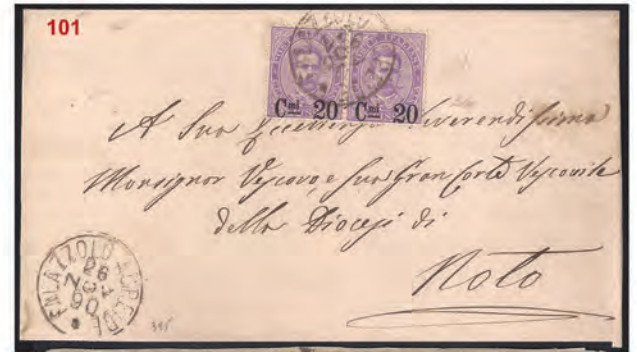 101
Cmi 20 Cmi 20
A Sua Eccellenza Reverendissima
Monsignor Vescovo, e Sua Gran Corte Vescovile
della Diocesi di
Noto
PALAZZOLO ACREIDE
26
NOV
90